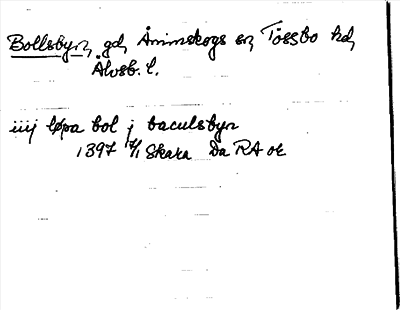 Bollsbyn, gd, Ånimskogs sn, Tössbo hd,
Älvsb. l.
iiij løpa bol j baculsbyn
1397 7/1 Skara Da RA ok